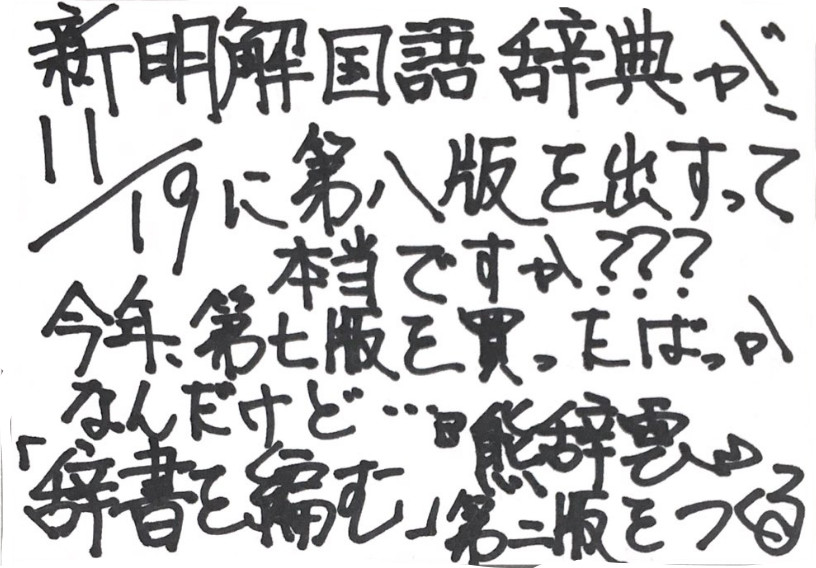 新明解国語辞典が、
11/19に第八版を出すって
本当ですか???
今年、第七版を買ったばっか
なんだけど…
『熊辞雲』
「辞書を編む」第二版をつくる